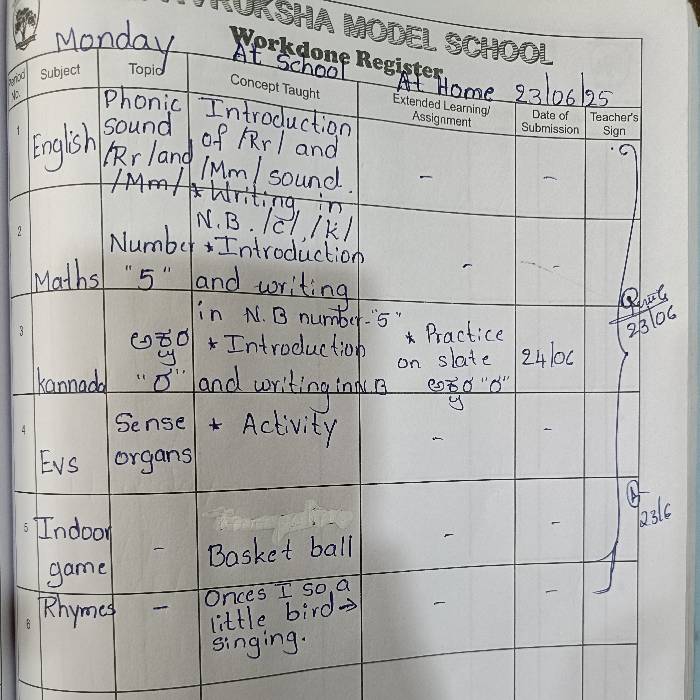 RUKSHA MODEL SCHOOL
Workdone Register
Monday At School At Home 23/06/25
Period No. Subject Topic Concept Taught Extended Learning/ Assignment Date of Submission Teacher's Sign
1 English Phonic sound /Rr/ and /Mm/
Introduction of /Rr/ and /Mm/ sound.
* Writing in N.B. /c/, /k/
- -
2 Maths Number "5"
* Introduction and writing in N.B number-"5"
- -
3 Kannada ಅಕ್ಷರ "ಠ"
* Introduction and writing in N.B
* Practice on slate ಅಕ್ಷರ "ಠ"
24/06
23/06
4 EVS Sense organs
* Activity
- -
5 Indoor game -
Basket ball
- -
23/6
6 Rhymes -
Onces I so a little bird→ singing.
- -